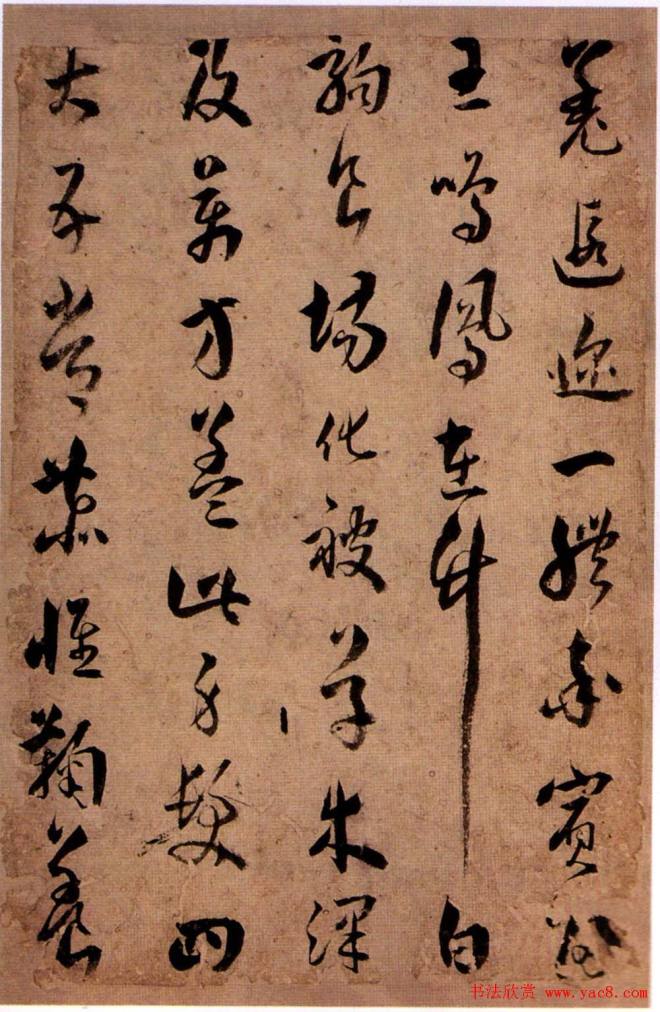 羌遐邇一體率賓歸
王鳴鳳在竹白
駒食場化被草木
及萬方蓋此身髮四
大五常恭惟鞠養
书法欣赏 www.yac8.com